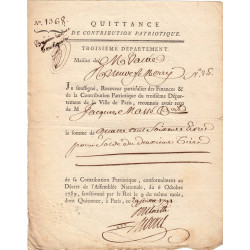 QUITTANCE
DE CONTRIBUTION PATRIOTIQUE.
N.° 1368
TROISIÈME DÉPARTEMENT.
Maison de M.
N.° 25.
JE soussigné, Receveur particulier des Finances &
de la Contribution Patriotique du troisième Dépar-
tement de la Ville de Paris, reconnois avoir reçu
de M. Jacques
la somme de quatre
pour solde du deuxieme tiers
de sa Contribution Patriotique, conformément au
Décret de l'Assemblée Nationale, du 6 Octobre
1789, sanctionné par le Roi le 9 du même mois,
dont Quittance, à Paris, ce